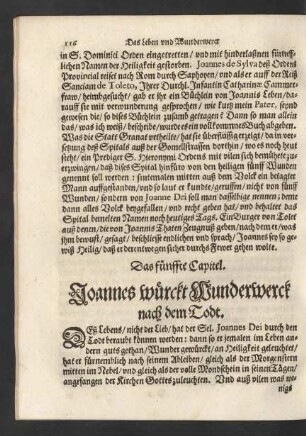 116 Das Leben vnd Wunderwerck
in S. Dominici Orden eingetretten / vnd mit hinderlaßnen fürtreff-
lichen Namen der Heiligkeit gestorben. Joannes de Sylva deß Ordens
Provincial reiset nach Rom durch Saphoyen / vnd als er auff der Reiß
Sanciam de Toleto, Ihrer Durchl. Infantin Catharinæ Cammer-
fraw / heimbgesucht / gab er jhr ein Büchlein von Joannis Leben / dar-
rauff sie mit verwunderung gesprochen / wie kurtz mein Pater, seynd
gewesen die / so dises Büchlein zusamb getragen? Dann so man allein
das / was ich weiß / beschribe / wurde es ein vollkommnes Buch abgeben.
Was die Statt Granat anbetrifft / hat sie überflüssig erzeigt / da in ver-
setzung deß Spitals auff der Gomellstrassen dorthin / wo es noch heut
steht / ein Prediger S. Hieronymi Ordens mit vilen sich bemühet zu-
erzwingen / daß dises Spital hinfüro von den heiligen fünff Wunden
genennt soll werden: sintemalen mitten auß dem Volck ein betagter
Mann auffgestanden / vnd so laut er kundte / geruffen / nicht von fünff
Wunden / sondern von Joanne Dei soll man dasselbige nennen; deme
dann alles Volck beygefallen / vnd recht geben hat / vnd behaltet das
Spital benelten Namen noch heutiges Tags. Ein Burger von Tolet
auß denen / die von Joannis Thaten Zeugnuß geben / nach dem er / was
jhm bewust / gesagt / beschliesset endlichen vnd sprach / Joannes sey so ge-
wiß Heilig / daß er derentwegen sicher durchs Fewer gehen wolte.
Das fünffte Capitel.
Joannes würckt Wunderwerck
nach dem Todt.
DEß Lebens / nicht der Lieb / hat der Sel. Joannes Dei durch den
Todt beraubt können werden: dann so er jemalen im Leben an-
dern guts gethan / Wunder gewürckt / an Heiligkeit geleuchtet /
hat er fürnemblich nach seinem Ableiben / gleich als der Morgenstern
mitten im Nebel / vnd gleich als der volle Mondschein in seinen Tägen /
angefangen der Kirchen Gottes zuleuchten. Vnd auß vilen was we-
nigs